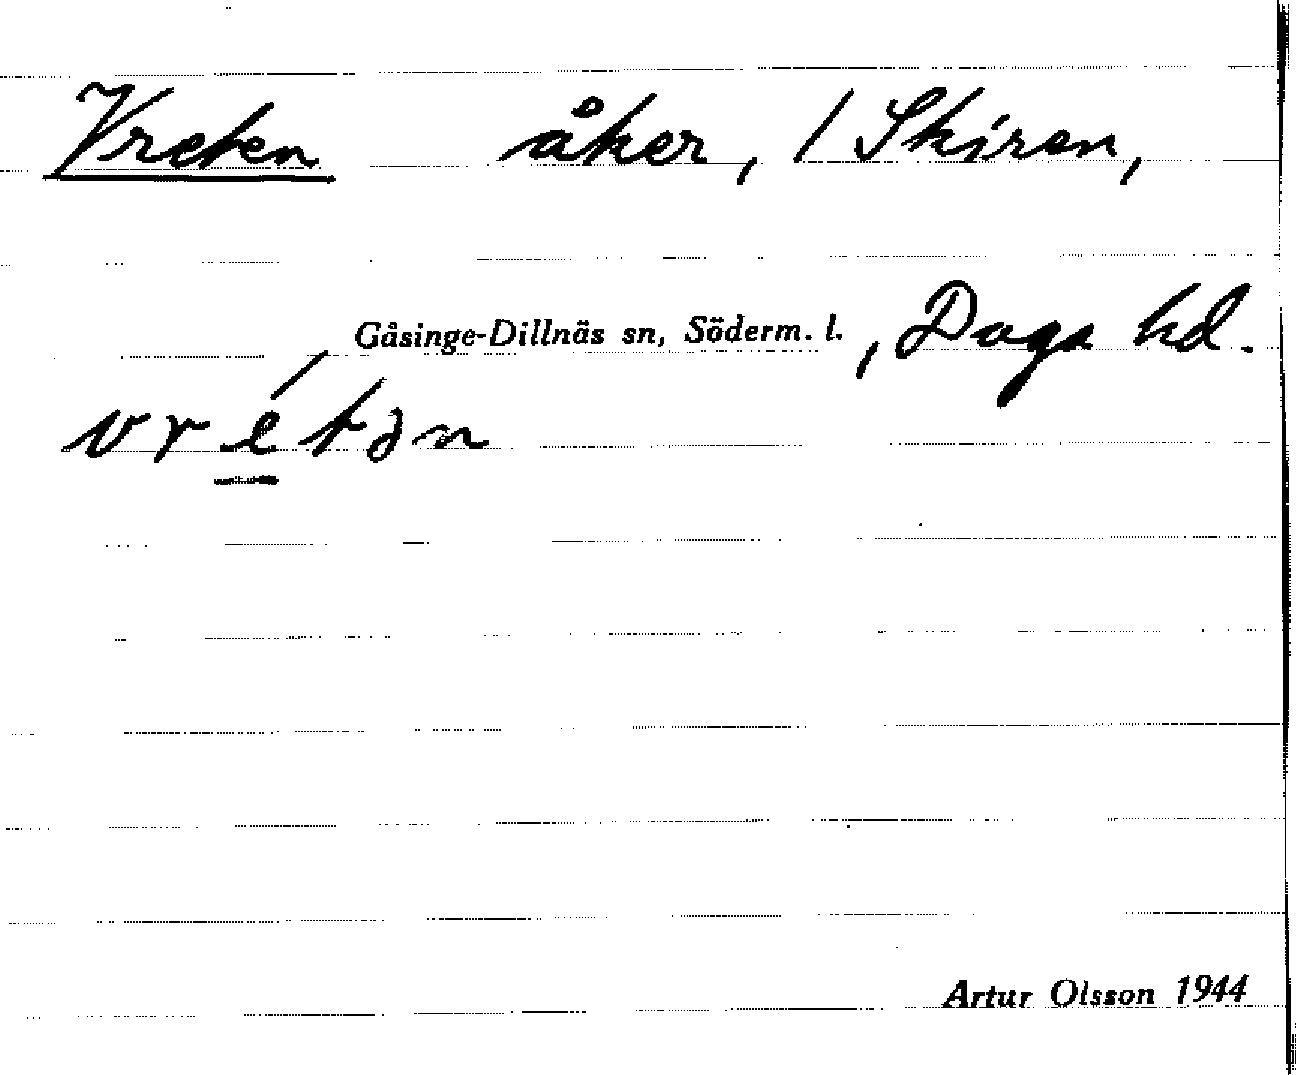 Vreten åker, / Skiren,
Gåsinge-Dillnäs sn, Söderm. l., Daga hd.
vrétən
Artur Olsson 1944